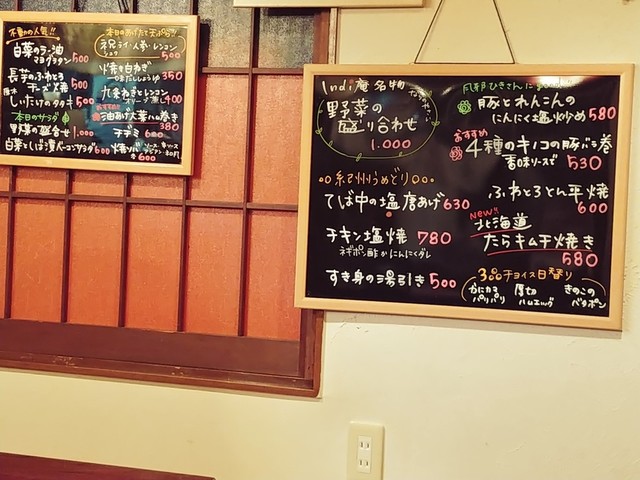 不動の人気!!
白菜のラー油
マヨグラタン 500
長芋のふわとろ
チーズ焼 500
しいたけのタタキ 500
本日のサラダ
野菜の盛合せ 1,000
白菜としば漬ベーコンサラダ 600
本日のあげたて天ぷら!!
500
350
九条ねぎとレンコン
オリーブ蒸し 400
おすすめ!
油あげ大葉ハム巻き
380
チヂミ 600
焼そば
600
Indi庵名物
野菜の
盛り合わせ
1.000
紀州うめどり
てば中の塩唐あげ 630
チキン塩焼 780
ネギポン酢 か にんにくダレ
すき身の湯引き 500
豚とれんこんの
にんにく塩炒め 580
おすすめ
4種のキノコの豚バラ巻
香味ソースで 530
ふわとろとん平焼
600
NEW!!
北海道
たらキムチ焼き
580
3品チョイス日替り
かにカマ
パリパリ
厚切
ハムエッグ
きのこの
バタポン